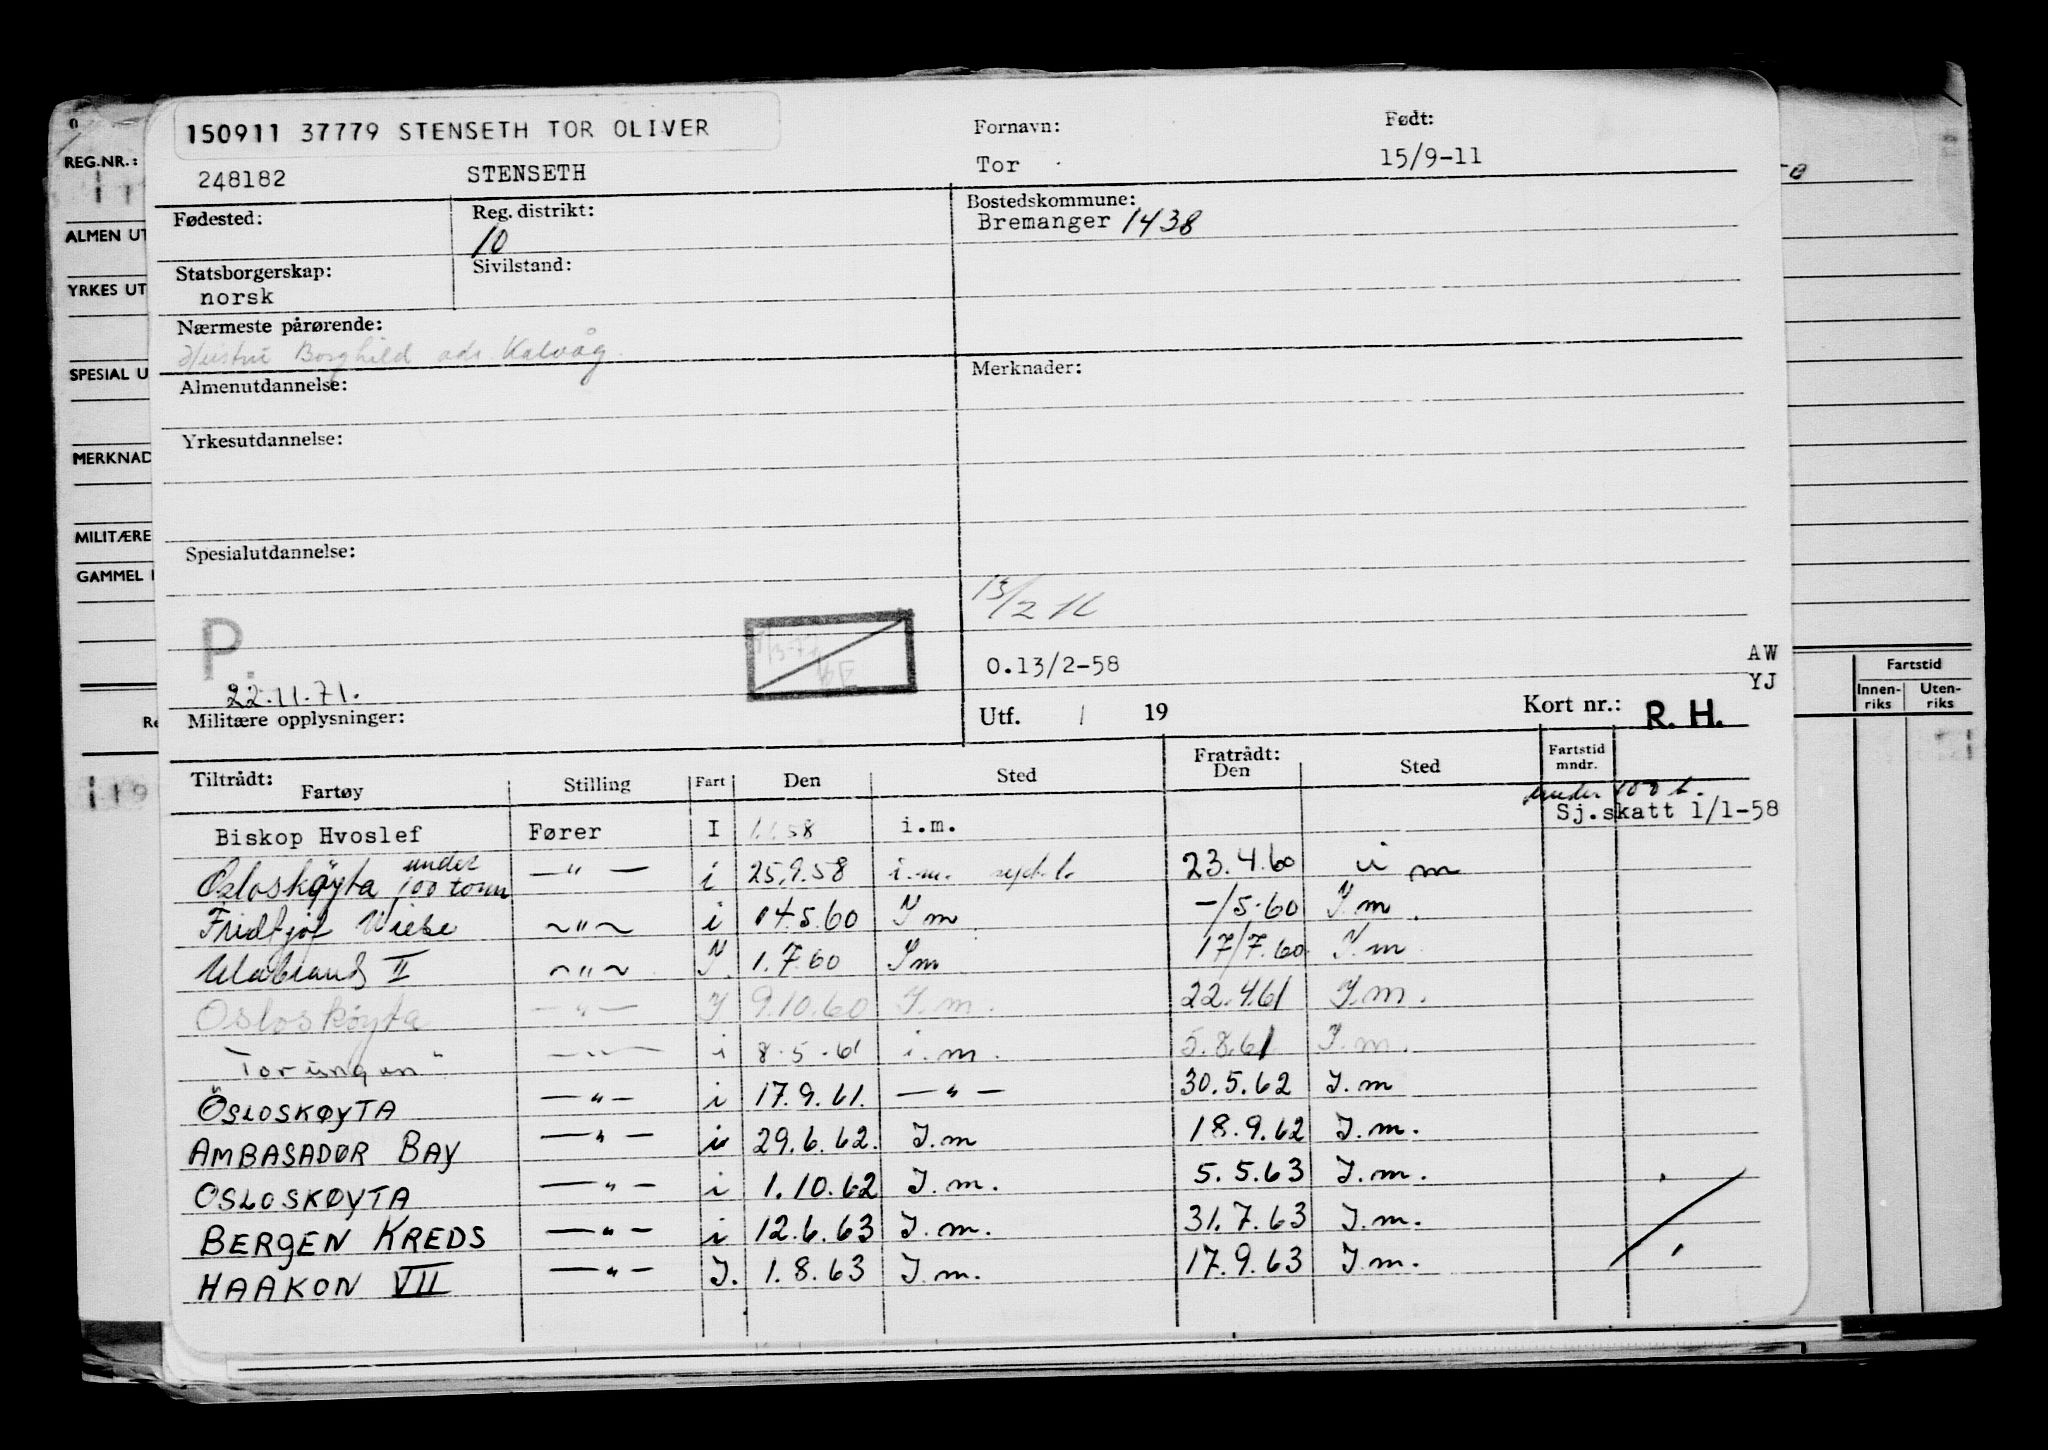 150911 37779 STENSETH TOR OLIVER
Fornavn: Født:
248182 STENSETH Tor 15/9-11
Fødested: Reg. distrikt: Bostedskommune:
10 Bremanger 1438
Statsborgerskap: Sivilstand:
norsk
Nærmeste pårørende:
Hustru Borghild adr. Kalvåg.
Almenutdannelse: Merknader:
Yrkesutdannelse:
Spesialutdannelse:
13/2
P.
O.13/2-58 AW
YJ
22.11.71.
Militære opplysninger: Utf. / 19 Kort nr.: R. H.
Tiltrådt: Fratrådt: Fartstid
Fartøy Stilling Fart Den Sted Den Sted mndr.
under 100 t.
Sj.skatt 1/1-58
Biskop Hvoslef Fører I 1.1.58 i.m.
Osloskøyta under 100 tonn —"— i 25.9.58 i.m. 23.4.60 i m
Fridtjof Wiese ~"~ i 14.5.60 I m -/5.60 I.m.
Ulabrand II ~"~ I. 1.7.60 I m 17/7.60 I.m
Osloskøyta —"— I 9.10.60 I.m. 22.4.61 I.m.
Torungen" —"— i 8.5.61 i.m. 5.8.61 I.m.
OSLOSKØYTA —"— i 17.9.61. —"— 30.5.62 I.m
AMBASADØR BAY —"— i 29.6.62. I.m 18.9.62 I.m.
OSLOSKØYTA —"— i 1.10.62 I.m. 5.5.63 I.m.
BERGEN KREDS —"— i 12.6.63 I.m. 31.7.63 I.m.
HAAKON VII —"— I. 1.8.63 I.m. 17.9.63 I.m.
REG.NR.:
ALMEN UT
YRKES UT
SPESIAL U
MERKNAD
MILITÆRE
GAMMEL
Re
Fartstid
Innen-riks Uten-riks